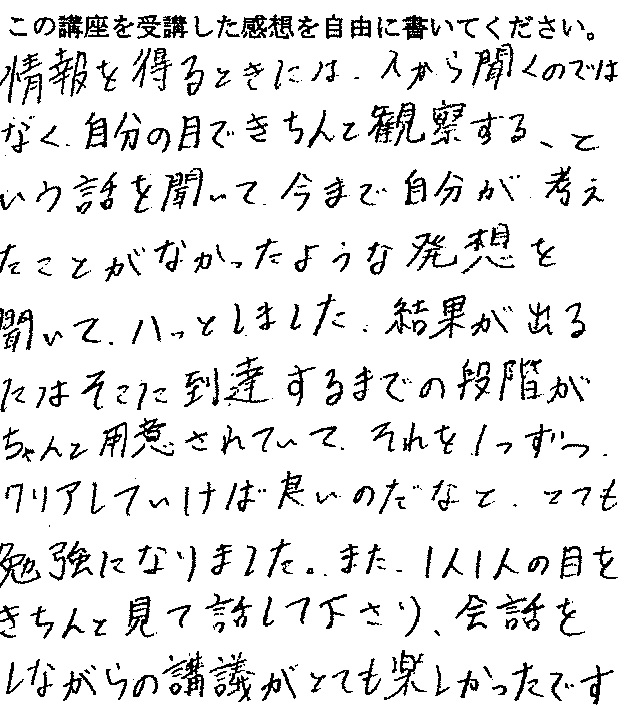 この講座を受講した感想を自由に書いてください。
情報を得るときには、人から聞くのでは
なく、自分の目できちんと観察する、と
いう話を聞いて、今まで自分が考え
たことがなかったような発想を
聞いて、ハッとしました。結果が出る
にはそこに到達するまでの段階が
ちゃんと用意されていて、それを1つずつ、
クリアしていけば良いのだなと、とても
勉強になりました。また、1人1人の目を
きちんと見て話して下さり、会話を
しながらの講議がとても楽しかったです